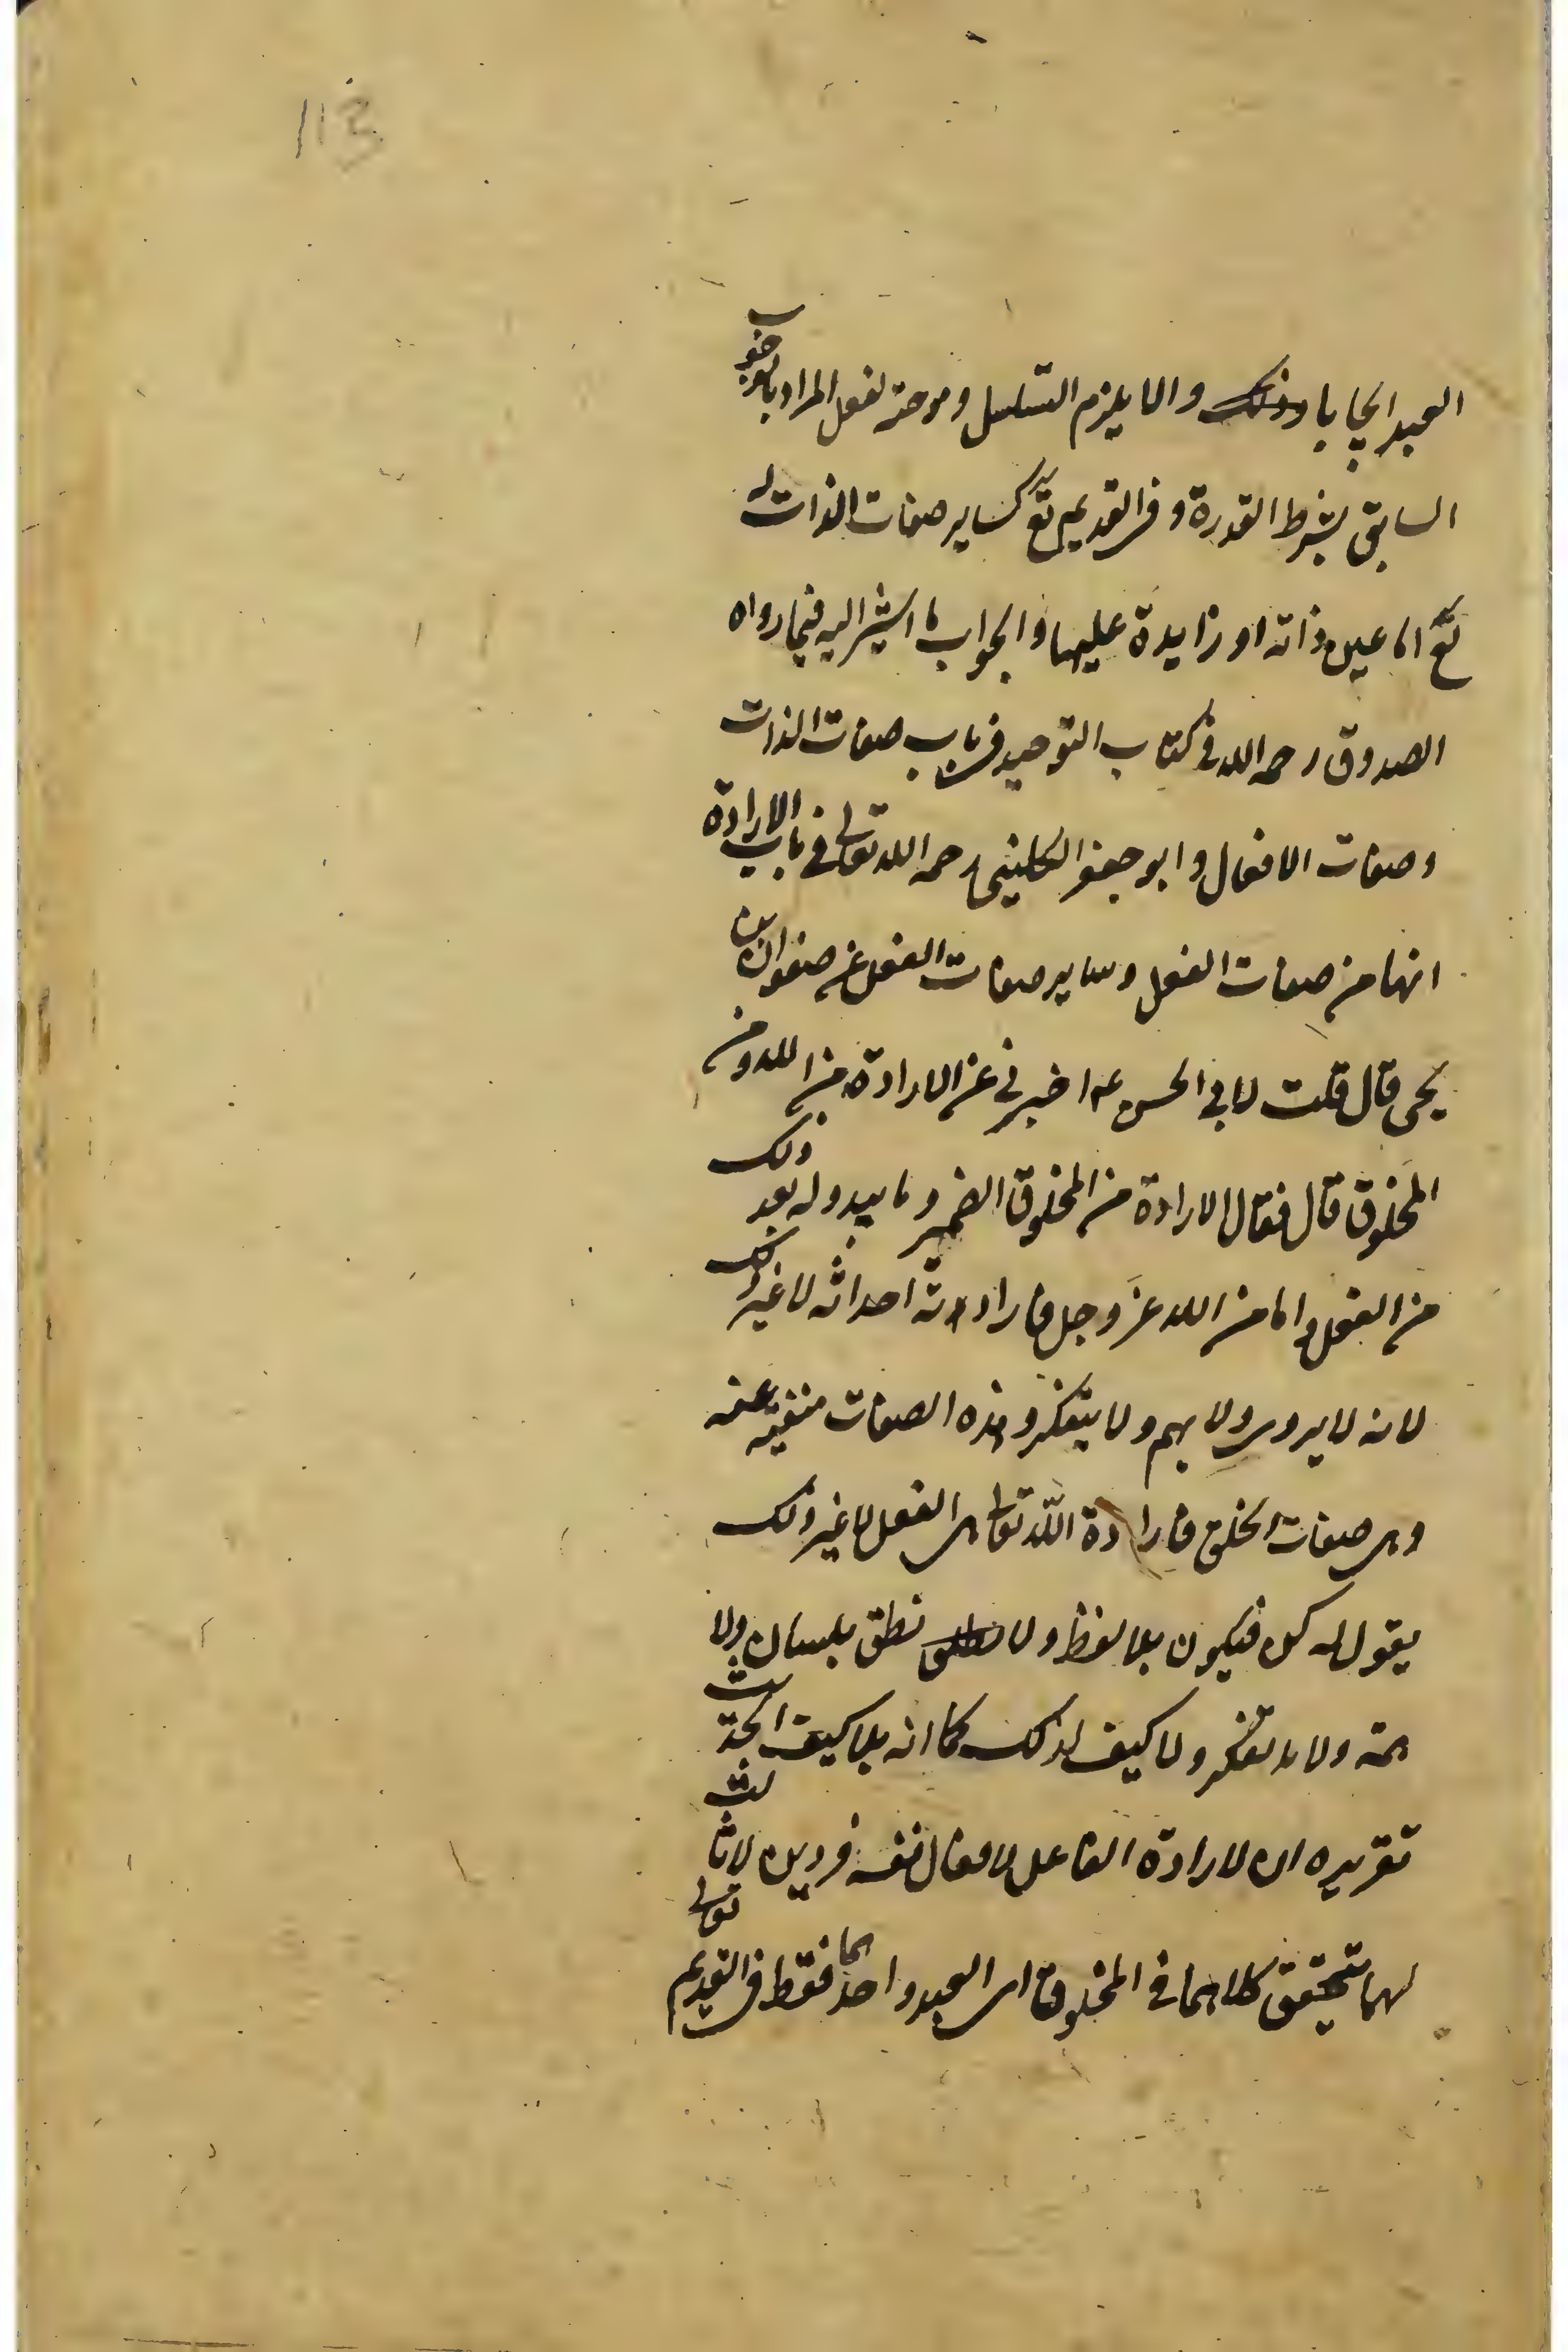 113
العبد ايجابا وذلك والا يلزم التسلسل وموجبة لفعل المراد بالوجوب
السابق بشرط القدرة وفي القديم تع كساير صفات الذات له
تع اما عين ذاته او زايدة عليها والجواب ما اشير اليه فيما رواه
الصدوق رحمه الله في كتاب التوحيد في باب صفات الذات
وصفات الافعال وابو جعفر الكليني رحمه الله تعالى في باب الارادة
انها من صفات الفعل وساير صفات الفعل عن صفوان بن
يحيى قال قلت لابي الحسن ع اخبرني عن الارادة من الله ومن
المخلوق قال فقال الارادة من المخلوق الضمير وما يبدو له بعد ذلك
من الفعل واما من الله عز وجل فارادته احداثه لا غير ذلك
لانه لا يروي ولا يهم ولا يتفكر وهذه الصفات منفية عنه
وهي صفات الخلق فارادة الله تعالى هي الفعل لا غير ذلك
يقول له كن فيكون بلا لفظ ولا نطق بلسان ولا
همة ولا تفكر ولا كيف لذلك كما انه بلا كيف الحديث
تقريره ان لارادة الفاعل لافعال نفسه فردين لا ثالث
لهما يتحقق كلاهما في المخلوق اي العبد واحدهما فقط في القديم تعالى